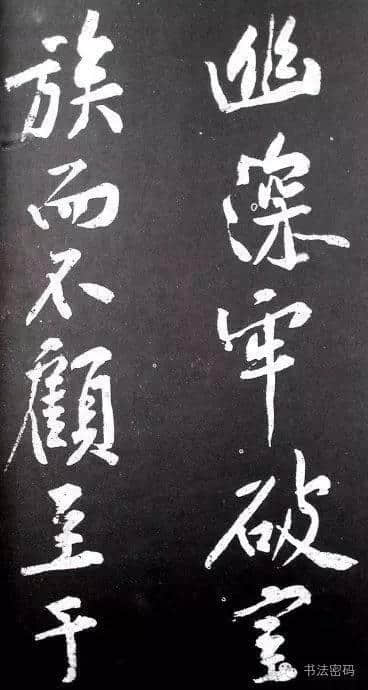 幽深牢破室
族而不顧至于
书法密码